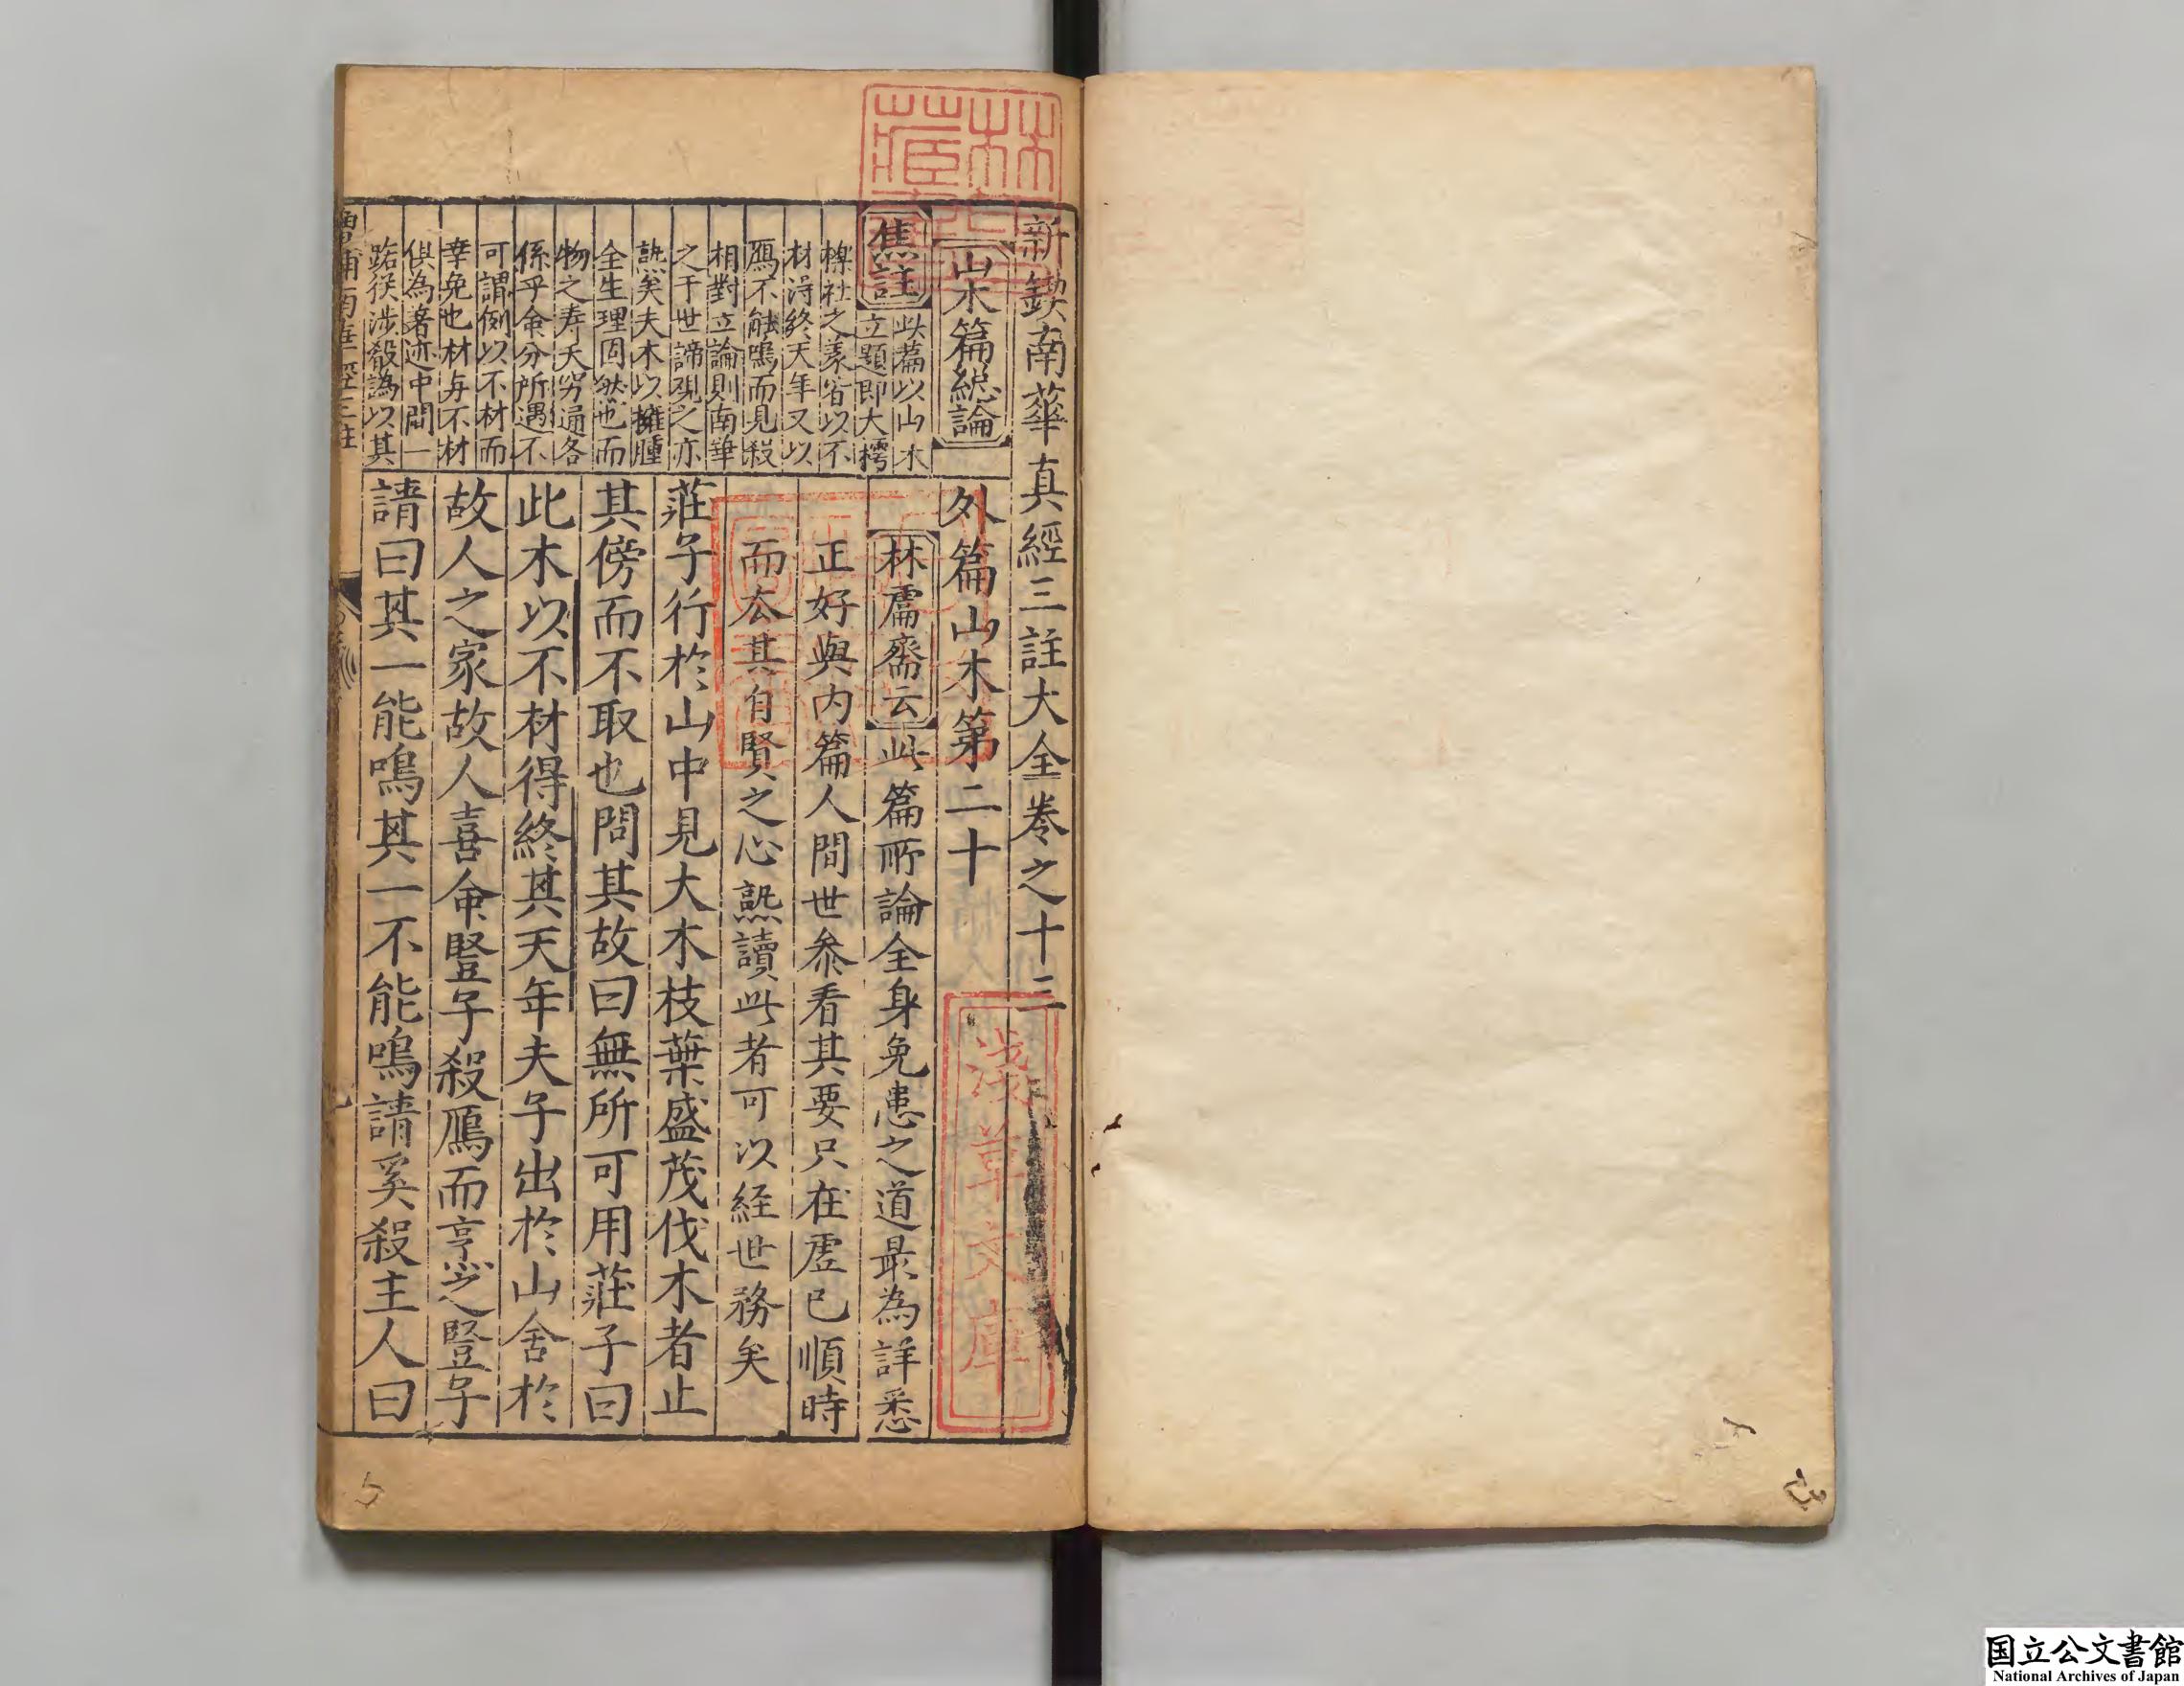 新鍥南華真經三註大全卷之十三
山木篇総論
焦註
此篇以山木
立題即大樗
櫟社之義皆以不
材得終天年又以
鴈不能鳴而見殺
相對立論則南華
之于世諦觀之亦
熟矣夫木以擁腫
全生理固然也而
物之寿夭穷通各
係乎命分所遇不
可謂例以不材而
幸免也材与不材
俱為著迹中間一
路猶涉殽譌以其
外篇山木第二十
林鬳齋云此篇所論全身免患之道最為詳悉
正好與内篇人間世参看其要只在虚己順時
而去其自賢之心熟讀此者可以経世務矣
莊子行於山中見大木枝葉盛茂伐木者止
其傍而不取也問其故曰無所可用莊子曰
此木以不材得終其天年夫子出於山舍於
故人之家故人喜命豎子殺鴈而亨之豎子
請曰其一能鳴其一不能鳴請奚殺主人曰
淺草文庫
国立公文書館
National Archives of Japan